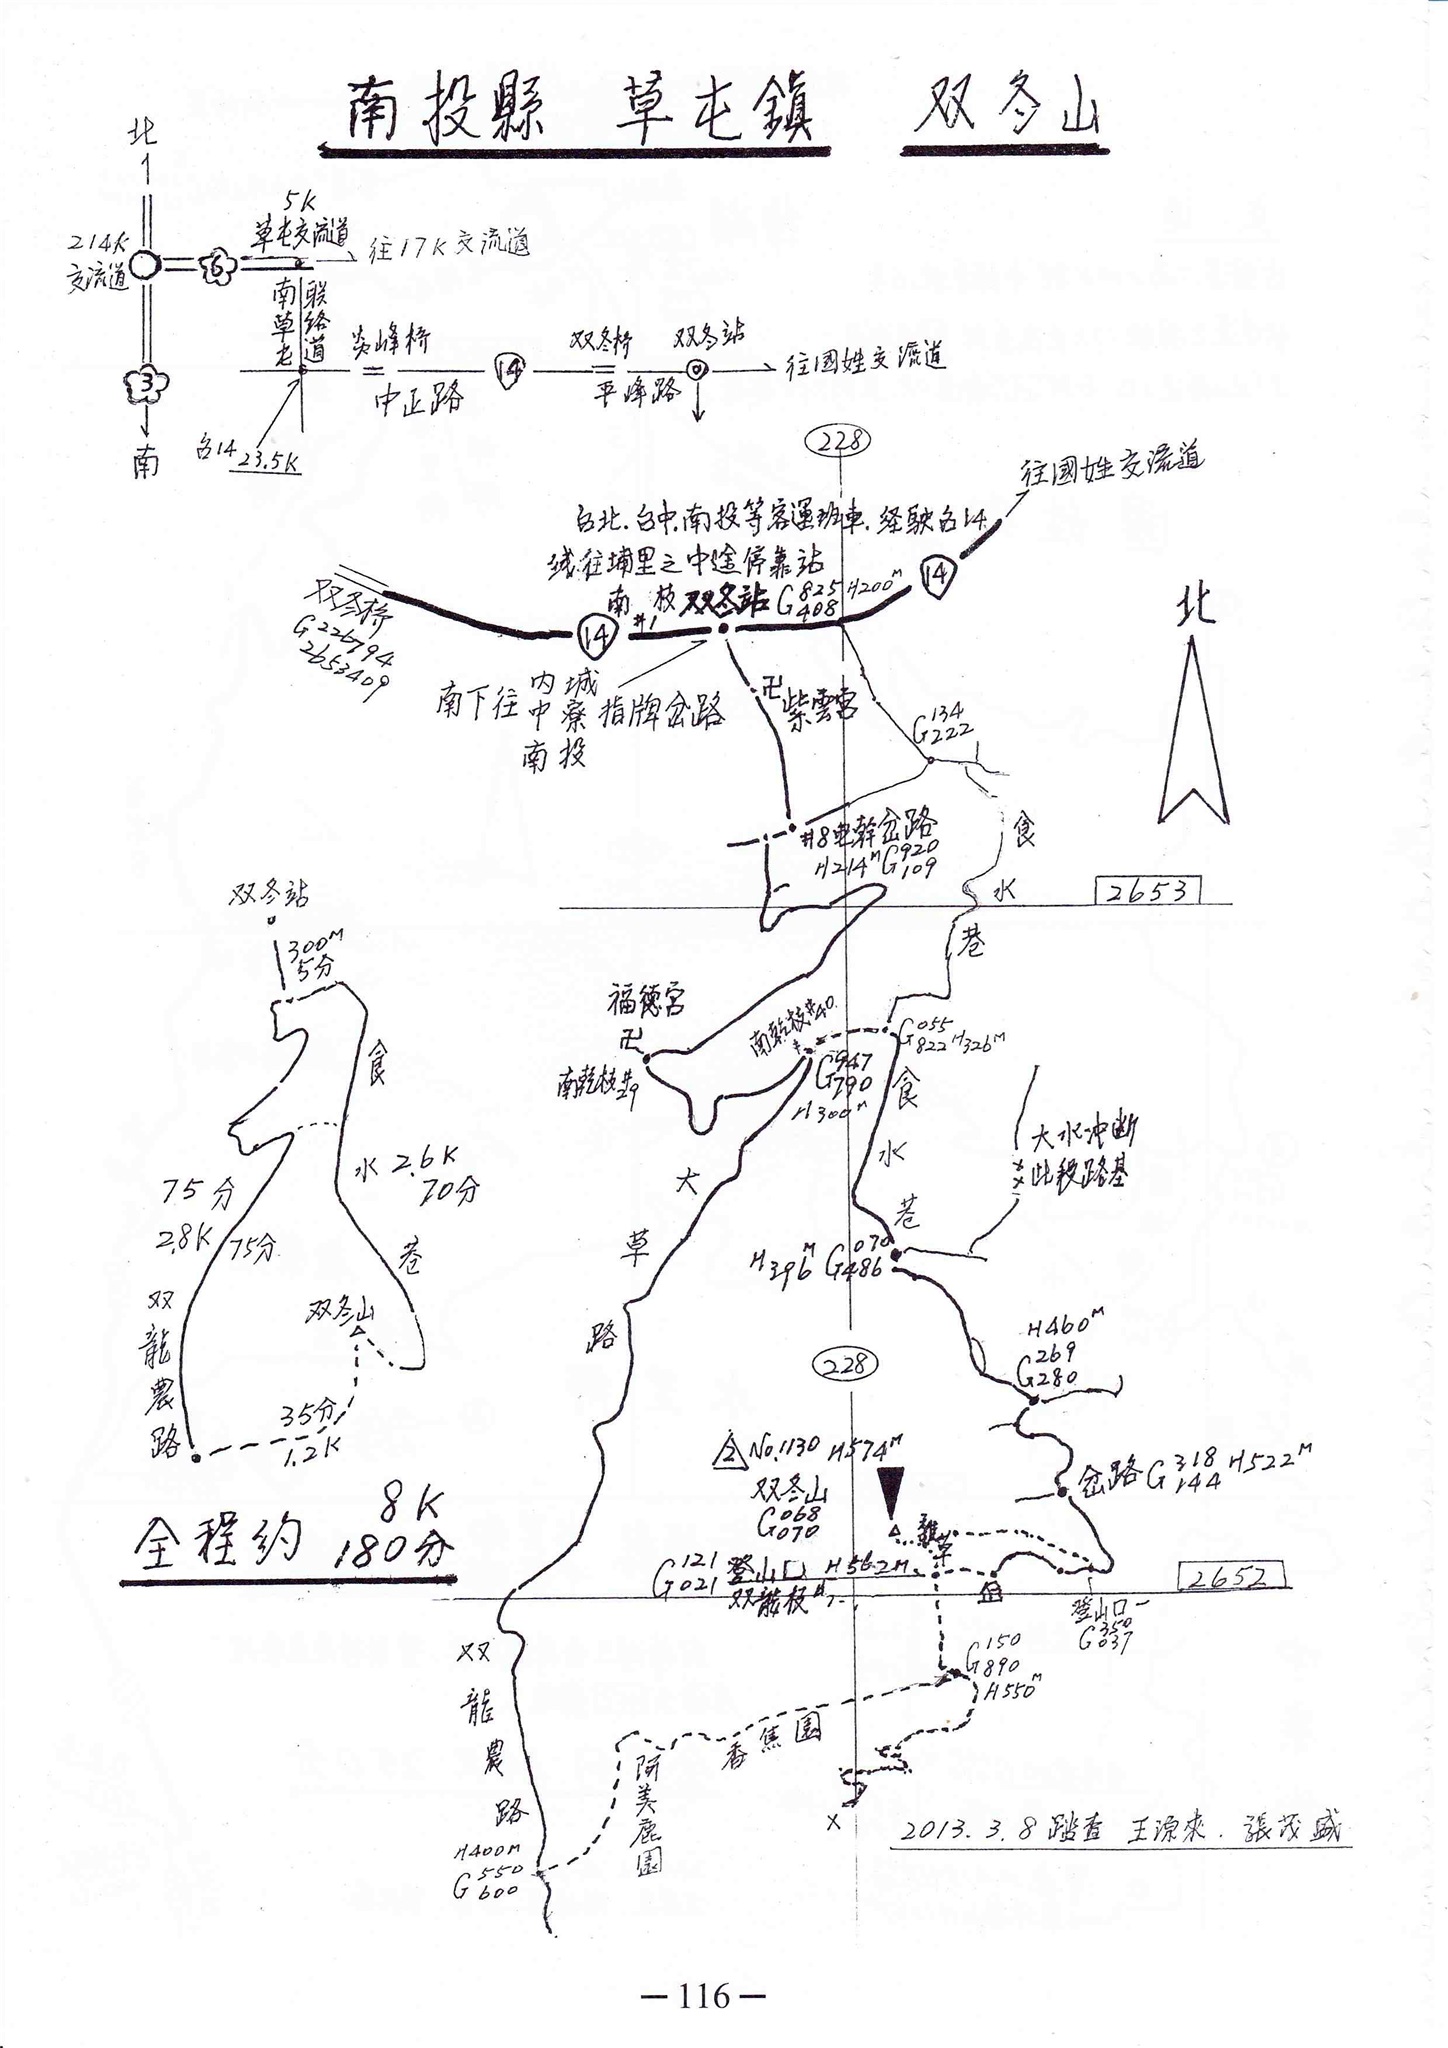 南投縣 草屯鎮 双冬山
北
5K
草屯交流道
往17K交流道
214K
交流道
6
南草屯
联絡道
3
南
炎峰桥
中正路
14
双冬桥
平峰路
双冬站
往國姓交流道
台14 23.5K
228
往國姓交流道
台北.台中.南投等客運班車.経駛台14
线往埔里之中途停靠站
双冬桥
G226794
2653409
14
南 枝
#1
双冬站
G825
408
H200M
14
南下往
内城
中寮
南投
指牌岔路
卍紫雲宮
G134
222
北
#8电幹岔路
H214M G920
109
食水巷
2653
双冬站
300M
5分
食水巷
2.6K
70分
75分
2.8K
75分
双龍農路
双冬山
35分
1.2K
全程約 8K
180分
福德宮
卍
南乾枝#29
南乾枝#40
G947
790
H300M
G055
822
H326M
食水巷
大水冲断
此段路基
大草路
H396M G070
486
H460M
G269
280
228
2 No.1130 H574M
双冬山
G068
070
雜草
岔路G318
144
H522M
G121
021
登山口 H562M
双龍枝#
2652
登山口一
G350
037
双龍農路
G150
890
H550M
香焦園
阿美鹿園
H400M
G550
600
X
2013.3.8踏查 王源來.張茂盛
－116－